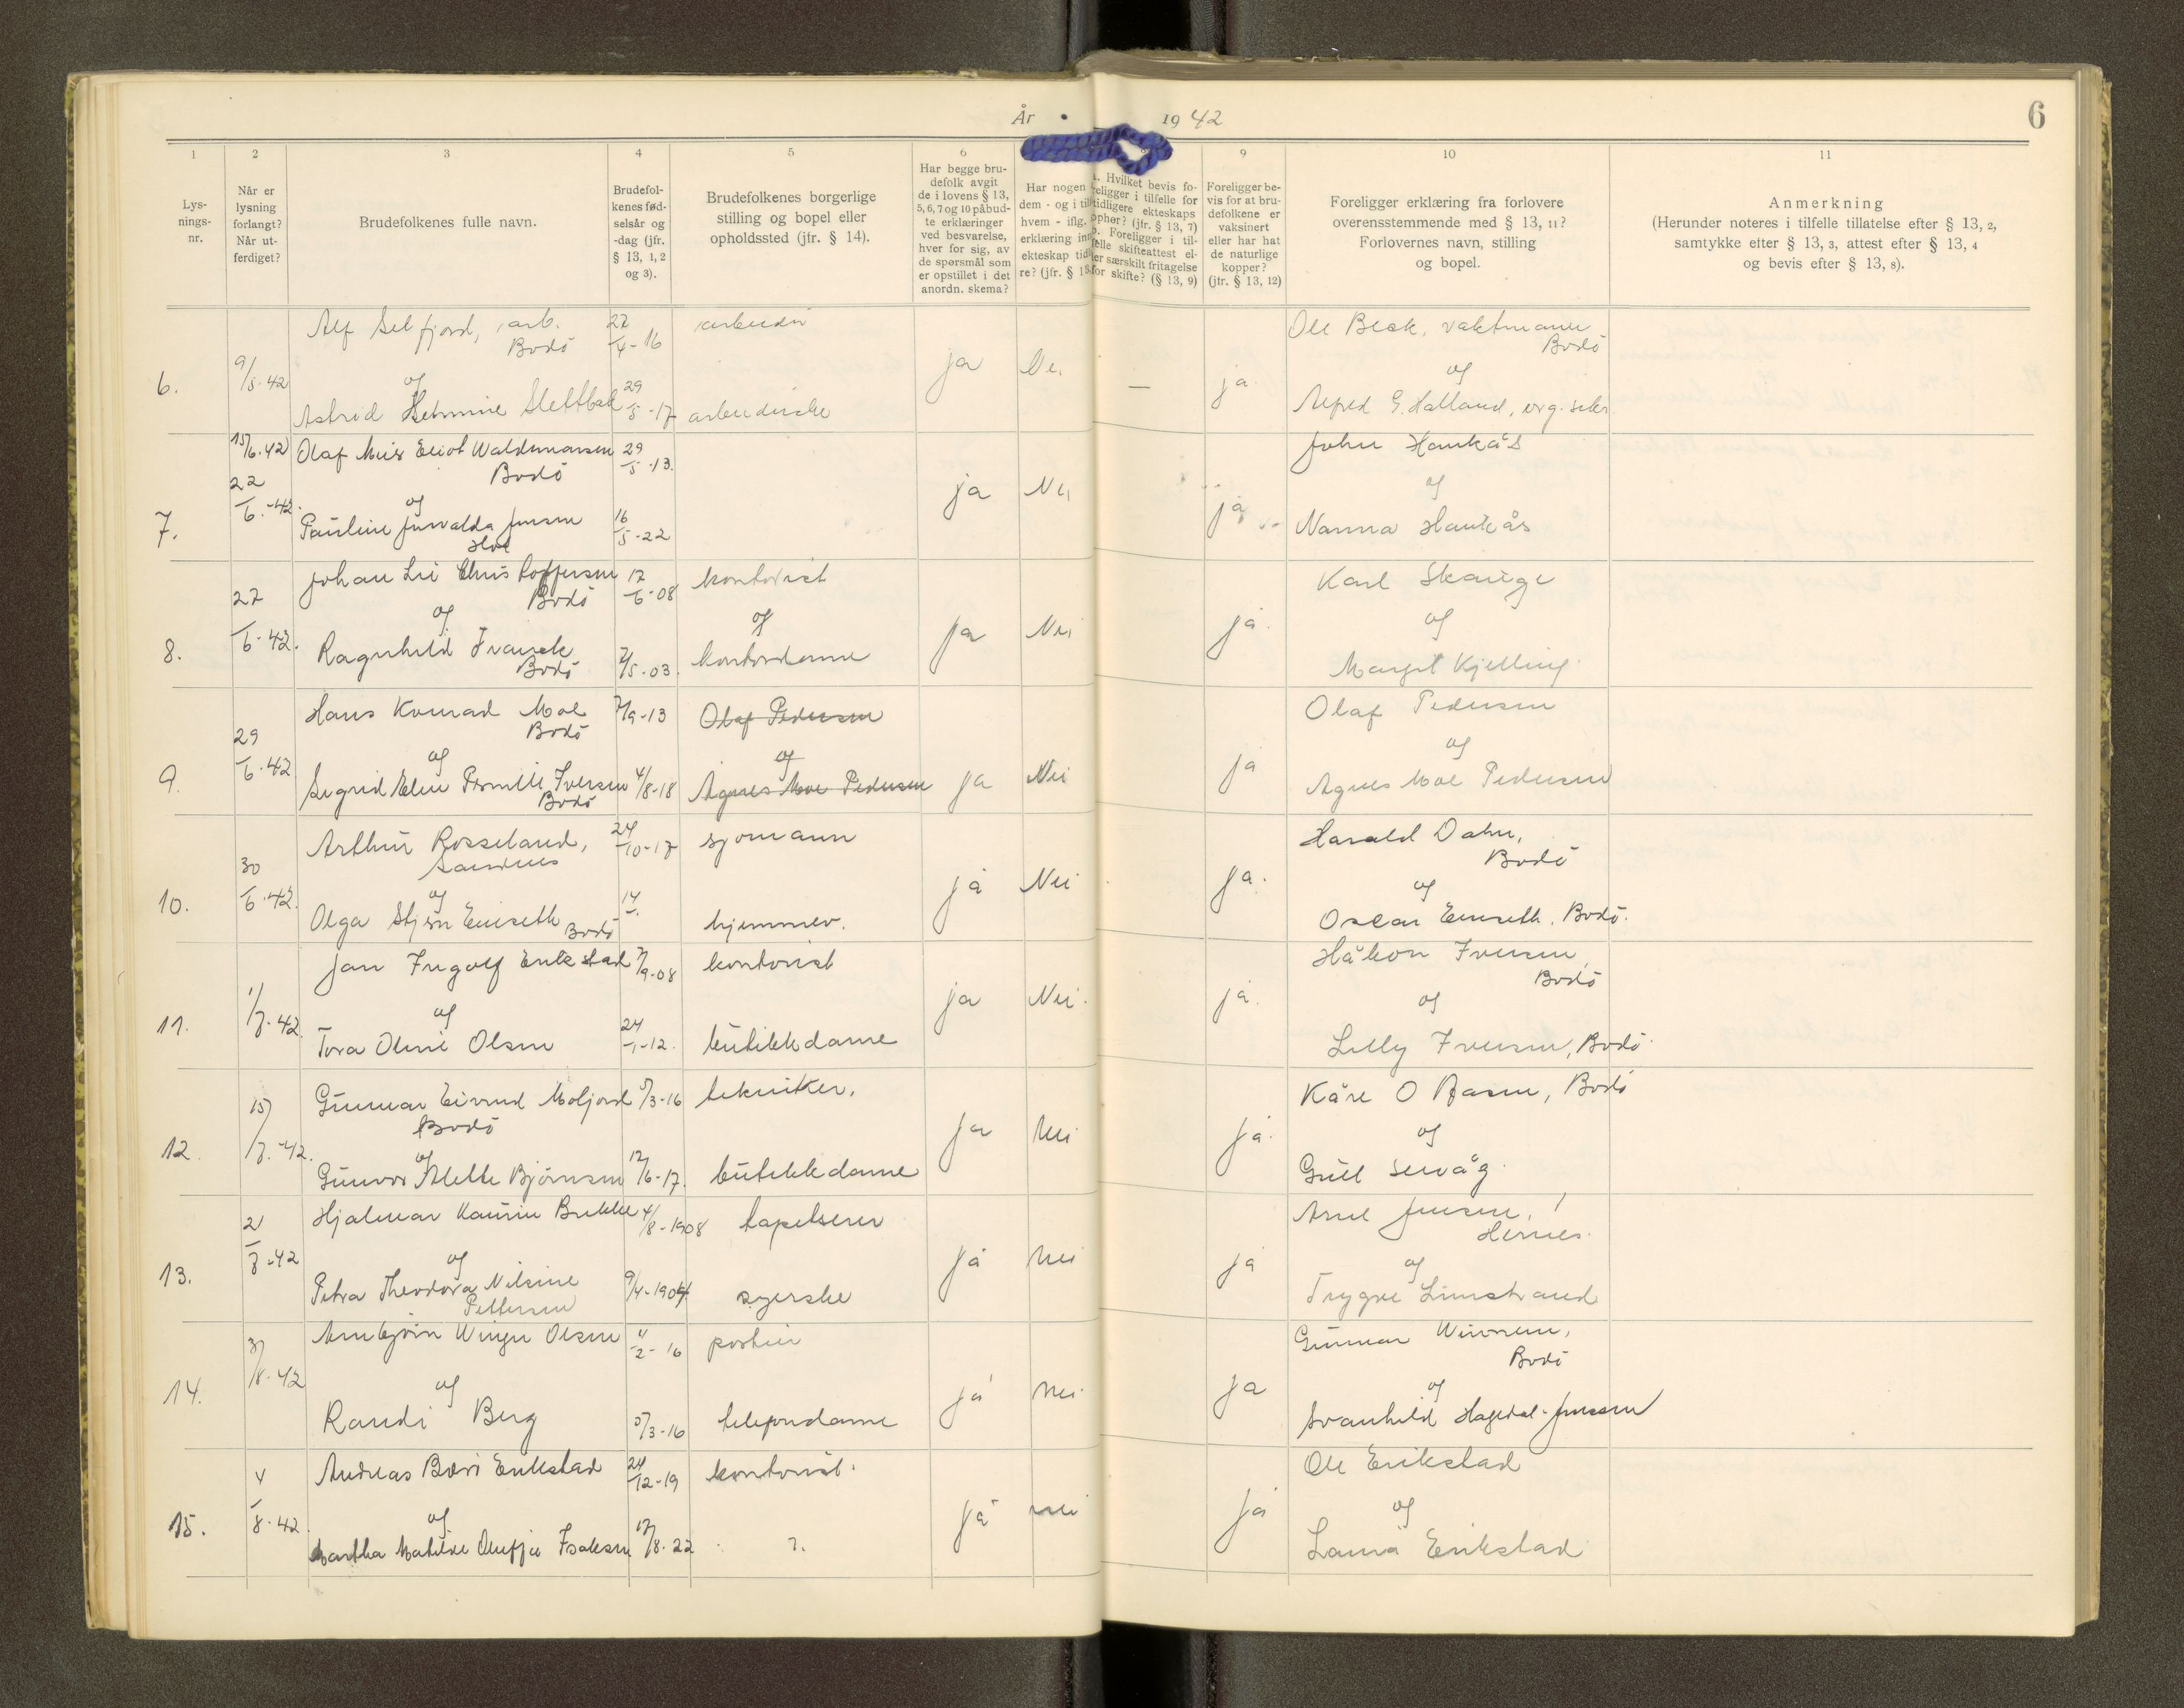 År 1942
6
1
2
3
4
5
6
8
9
10
11
Lys-
nings-
nr.
Når er
lysning
forlangt?
Når ut-
ferdiget?
Brudefolkenes fulle navn.
Brudefol-
kenes fød-
selsår og
-dag (jfr.
§ 13, 1, 2
og 3).
Brudefolkenes borgerlige
stilling og bopel eller
opholdssted (jfr. § 14).
Har begge bru-
defolk avgit
de i lovens § 13,
5, 6, 7 og 10 påbud-
te erklæringer
ved besvarelse,
hver for sig, av
de spørsmål som
er opstillet i det
anordn. skema?
Har nogen
dem - og i til
hvem - iflg.
erklæring inn
ekteskap tid
re? (jfr. § 1
Hvilket bevis fo-
religger i tilfelle for
tidligere ekteskaps
ophør? (jfr. § 13, 7)
b. Foreligger i til-
felle skifteattest el-
ler særskilt fritagelse
for skifte? (§ 13, 9)
Foreligger be-
vis for at bru-
defolkene er
vaksinert
eller har hat
de naturlige
kopper?
(jfr. § 13, 12)
Foreligger erklæring fra forlovere
overensstemmende med § 13, 11?
Forlovernes navn, stilling
og bopel.
Anmerkning
(Herunder noteres i tilfelle tillatelse efter § 13, 2,
samtykke efter § 13, 3, attest efter § 13, 4
og bevis efter § 13, 8).
6.
9/5.42
Alf Selfjord, arb.
Bodö
og
Astrid Slettbak
27/4-16
29/5-17
arbeider
arbeiderske
ja
—
ja
Ole Beck, vaktmann
Bodö
og
Alfred G. Halland, org. sekr
7.
15/6.42
22/6.-42.
Olaf Eliot Waldemarsen
Bodö
og
Pauline Jensen
29/5-13.
16/5-22
ja
Nei
ja
John Haukås
og
Nanna Haukås
8.
27/6-42.
Johan Lie Christoffersen
Bodö
og
Ragnhild Franck
Bodö
17/6-08
2/5-03.
kontorist
og
kontordame
ja
Nei
ja.
Karl Skauge
og
Margit Kjelling
9.
29/6.42
Hans Konrad Moe
Bodö
og
Sigrid Elin Pernille Iversen
Bodö
7/9-13
4/8-18
Olaf Pedersen
og
Agnes Moe Pedersen
ja
Nei
ja
Olaf Pedersen
og
Agnes Moe Pedersen
10.
30/6.42.
Arthur Rosseland,
Sandnes
og
Olga Stjern Emseth Bodö
24/10-17
14/-.
sjömann
hjemmev.
ja
Nei
ja.
Harald Dahn,
Bodö
og
Oscar Emseth. Bodö.
11.
1/7.42.
Jan Ingolf Erikstad
og
Tora Oline Olsen
7/9-08
24/1-12.
kontorist
butikkdame
ja
Nei.
ja.
Håkon Iversen,
Bodö
og
Lilly Iversen, Bodö.
12.
15/7.-42.
Gunnar Eivind Moljord
Bodö
og
Gunvor Alette Björnsen
5/3-16
12/6-17.
tekniker.
butikkdame
ja
Nei
ja.
Kåre O Aasen, Bodö
og
Gull
13.
21/7-42
Hjalmar Brekke
og
Petra Theodora Nilsine
Pettersen
4/8-1908
9/4-1904
tapetserer
syerske
ja
Nei
ja
Arne Jensen,
Hernes.
og
Trygve Limstrand
14.
3/8.42
Arnbjörn Olsen
og
Randi Berg
11/2-16
5/3-16
portier
telefondame
ja
Nei.
ja
Gunnar
Bodö
og
Svanhild Hagedal-Jensen
15.
4/8.42.
Andreas Erikstad
og
Martha Matilde Isaksen
24/12-19
17/8.22
kontorist.
?.
ja
nei
ja
Ole Erikstad
og
Laura Erikstad